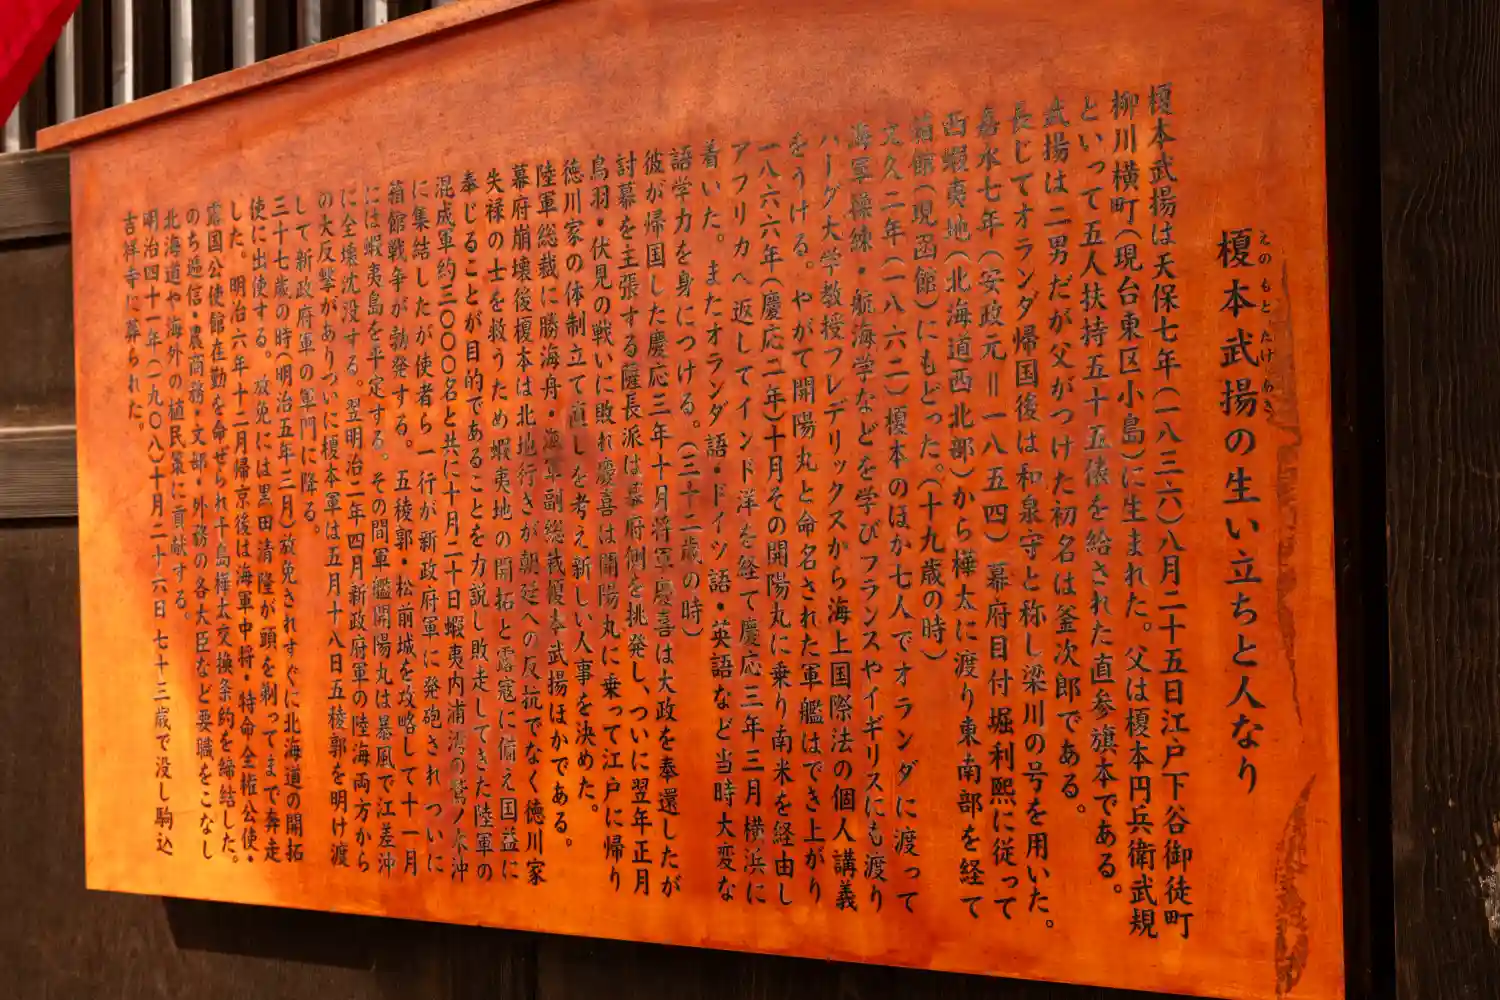 榎本武揚の生い立ちと人なり
えのもと たけあき
榎本武揚は天保七年(一八三六)八月二十五日江戸下谷御徒町
柳川横町(現台東区小島)に生まれた。父は榎本円兵衛武規
といって五人扶持五十五俵を給された直参旗本である。
武揚は二男だが父がつけた初名は釜次郎である。
長じてオランダ帰国後は和泉守と称し梁川の号を用いた。
嘉永七年(安政元＝一八五四)幕府目付堀利熙に従って
西蝦夷地(北海道西北部)から樺太に渡り東南部を経て
箱館(現函館)にもどった。(十九歳の時)
文久二年(一八六二)榎本のほか七人でオランダに渡って
海軍操練・航海学などを学びフランスやイギリスにも渡り
ハーグ大学教授フレデリックスから海上国際法の個人講義
をうける。やがて開陽丸と命名された軍艦はでき上がり
一八六六年(慶応二年)十月その開陽丸に乗り南米を経由し
アフリカへ返してインド洋を経て慶応三年三月横浜に
着いた。またオランダ語・ドイツ語・英語など当時大変な
語学力を身につける。(三十二歳の時)
彼が帰国した慶応三年十月将軍慶喜は大政を奉還したが
討幕を主張する薩長派は幕府側を挑発し、ついに翌年正月
鳥羽・伏見の戦いに敗れ慶喜は開陽丸に乗って江戸に帰り
徳川家の体制立て直しを考え新しい人事を決めた。
陸軍総裁に勝海舟・海軍副総裁榎本武揚ほかである。
幕府崩壊後榎本は北地行きが朝廷への反抗でなく徳川家
失禄の士を救うため蝦夷地の開拓と露寇に備え国益に
奉じることが目的であることを力説し敗走してきた陸軍の
混成軍約三〇〇〇名と共に十月二十日蝦夷内浦湾の鷲ノ木沖
に集結したが使者ら一行が新政府軍に発砲されついに
箱館戦争が勃発する。五稜郭・松前城を攻略して十一月
には蝦夷島を平定する。その間軍艦開陽丸は暴風で江差沖
に全壊沈没する。翌明治二年四月新政府軍の陸海両方から
の大反撃がありついに榎本軍は五月十八日五稜郭を明け渡
して新政府軍の軍門に降る。
三十七歳の時(明治五年三月)放免されすぐに北海道の開拓
使に出使する。放免には黒田清隆が頭を剃ってまで奔走
した。明治六年十二月帰京後は海軍中将・特命全権公使・
露国公使館在勤を命ぜられ千島樺太交換条約を締結した。
のち逓信・農商務・文部・外務の各大臣など要職をこなし
北海道や海外の植民策に貢献する。
明治四十一年(一九〇八)十月二十六日七十三歳で没し駒込
吉祥寺に葬られた。